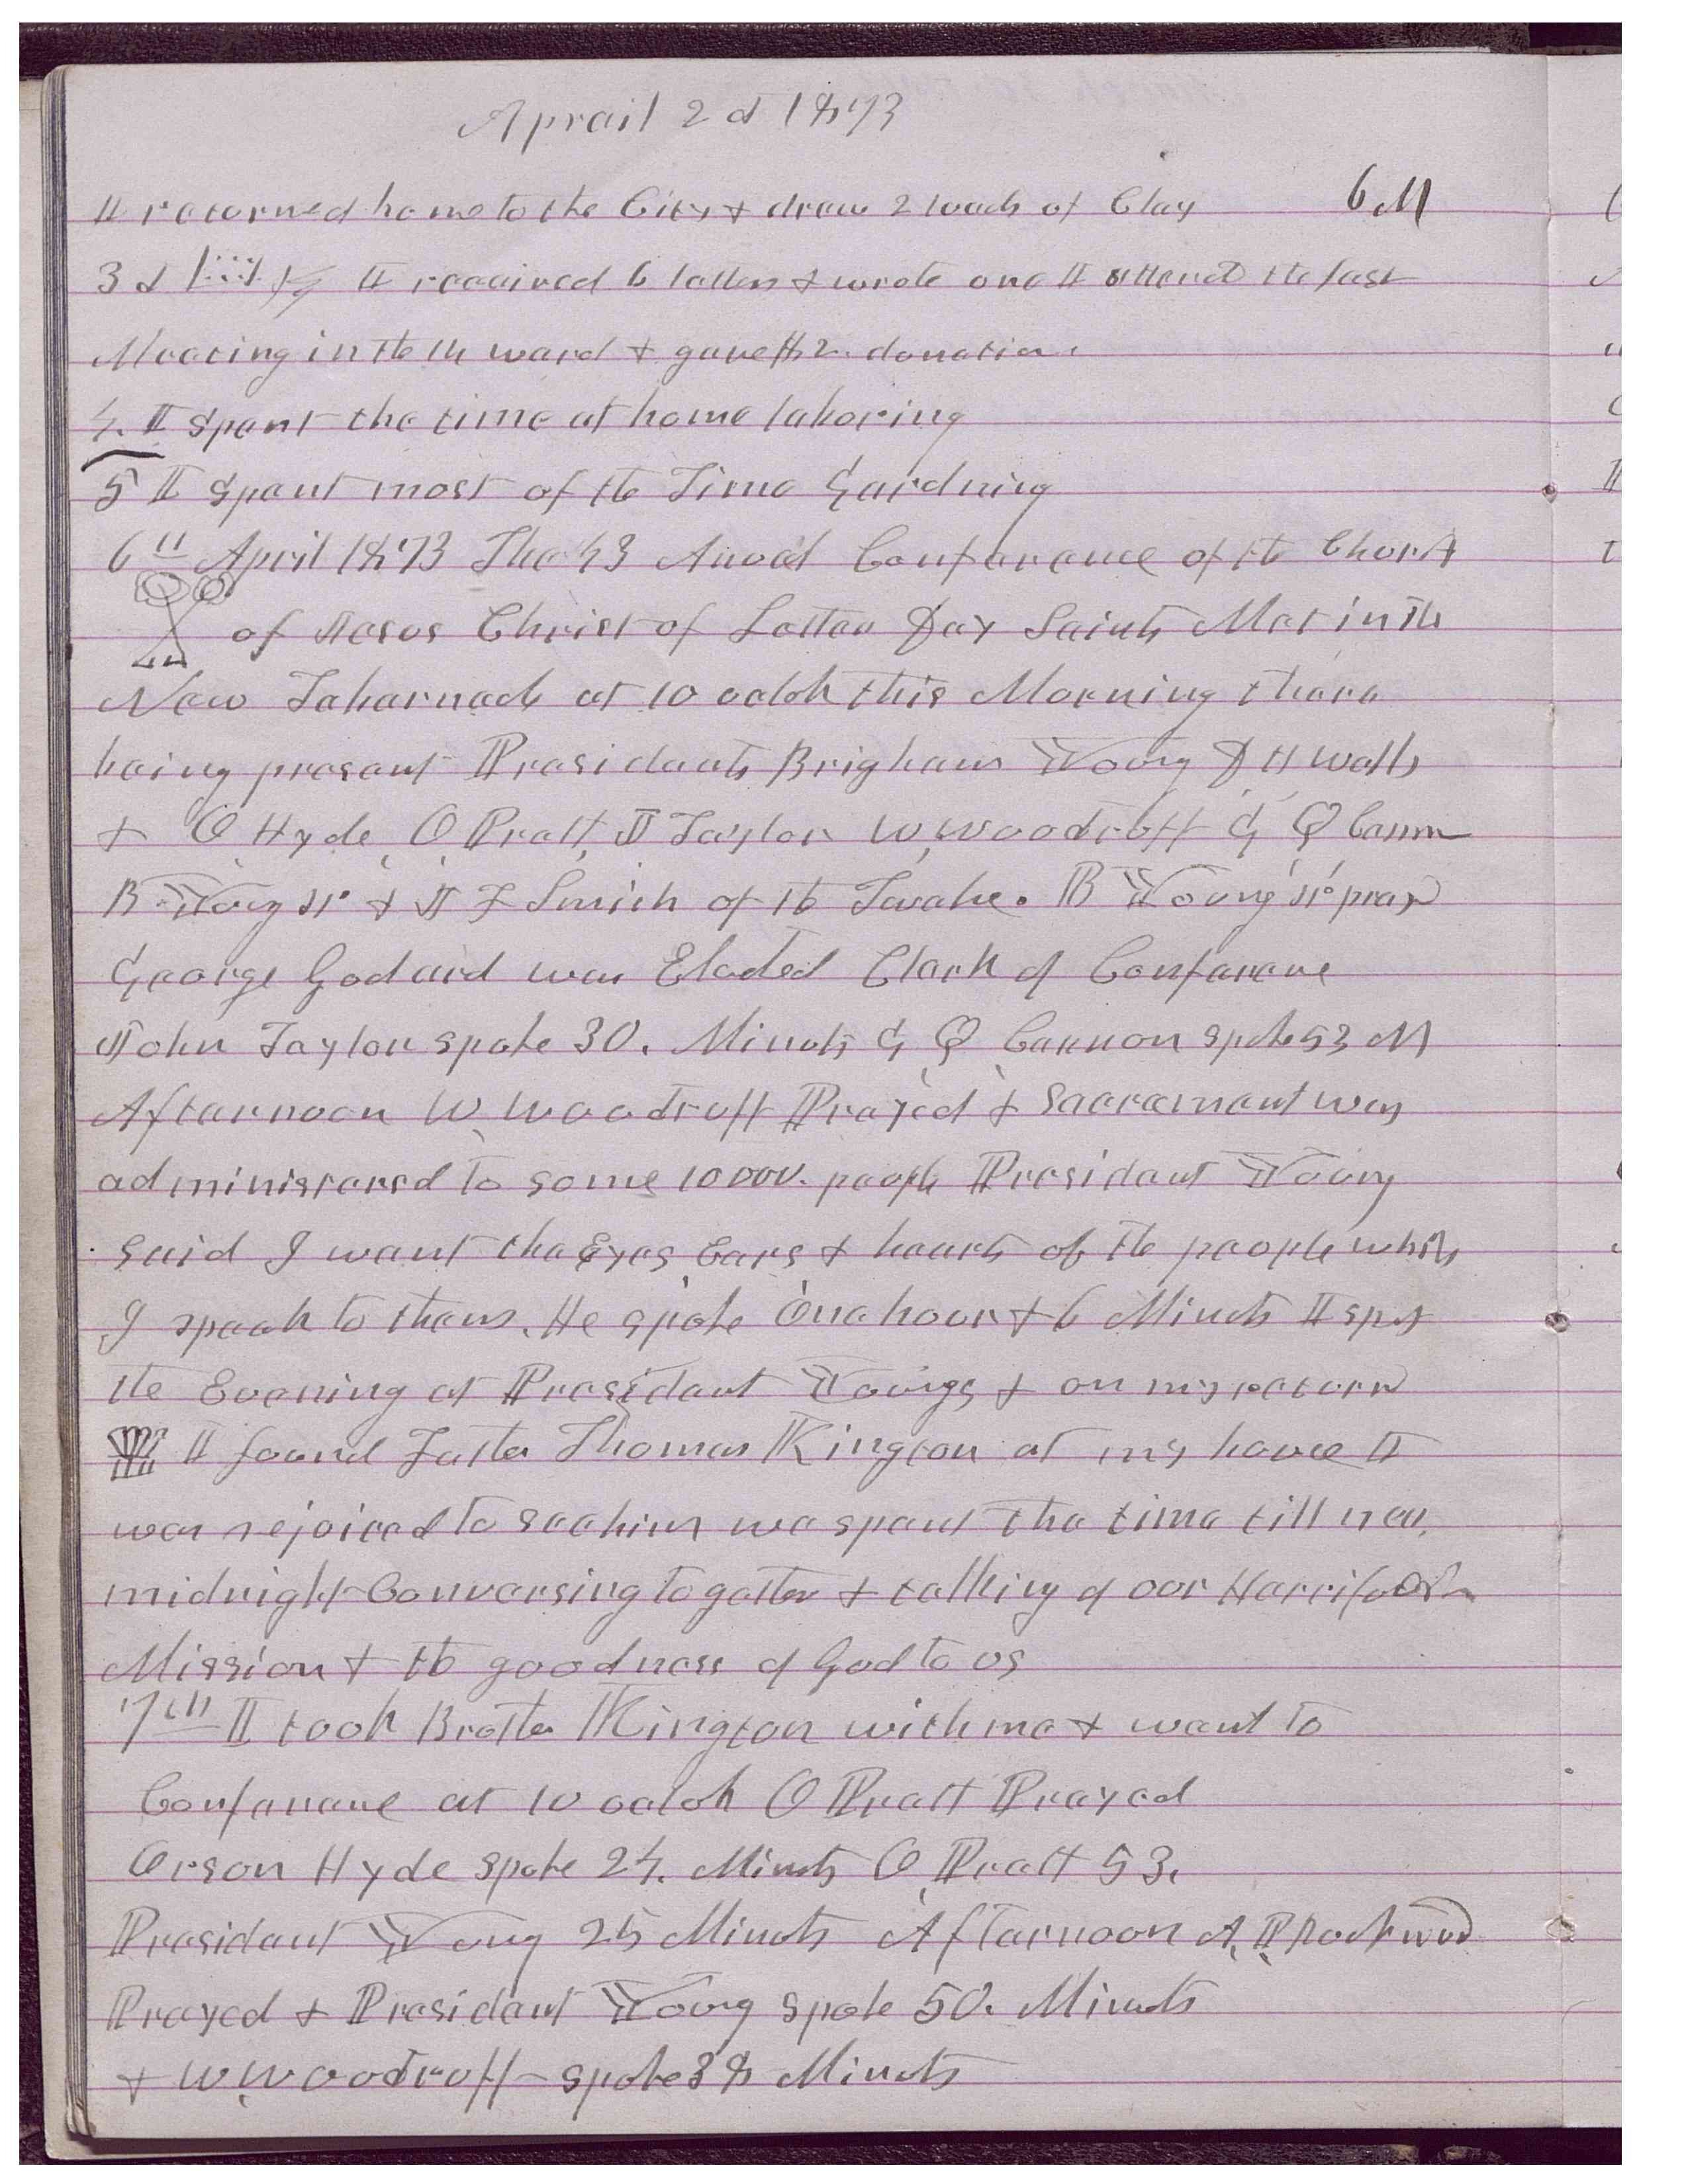 Aprail 2d 1873
I returned home to the City & drew 2 loads of Clay 6 M
3d I received 6 letters & wrote one I attend the fast
Meeting in the 14 ward & gave $2. donation.
4. I spent the time at home laboring
5 I spent most of the Time Gardning
6th April 1873 The 43 Anual Conference of the Church
of Jesus Christ of Latter Day Saints Met in the
New Tabernacle at 10 oclok this Morning there
being present Presidents Brigham Young D H Wells
& O Hyde, O Pratt, J Taylor W, Woodruff G Q Cannon
B Young Jr & J F Smith of the Twelve. B Young Jr pray
George Godard was Elected Clerk of Conference
John Taylor spoke 30. Minuts G Q Cannon spoke 53 M
Afternoon W Woodruff Prayed & Sacrament was
administered to some 10000. people President Young
said I want the Eyes Ears & hearts of the people while
I speak to them. He spoke One hour & 6 Minuts I spet
the Evening at President Youngs & on my return
I found Father Thomas Kington at my house I
was rejoiced to see him we spent the time till near
midnight Conversing together & talking of our Herrifordshire
Mission & the goodness of God to us
7th I took Brother Kington with me & went to
Conference at 10 oclok O Pratt Prayed
Orson Hyde spoke 24. Minuts O Pratt 53.
President Young 25 Minuts Afternoon A, P Rockwood
Prayed & President Young spoke 50. Minuts
& W Woodruff spoke 38 Minuts